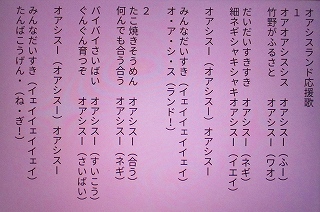 オアシスランド応援歌
1
オアオアシスシス　オアシスー（ふー）
竹野がふるさと　オアシスー（ワオ）
だいだいすきすき　オアシスー（ネギ）
細ネギシャキシャキオアシスー（イエイ）
オアシスー（オアシスー）　オアシスー
みんなだいすき（イェイイェイイェイ）
オ・ア・シ・ス（ランド！）
2
たこ焼きそうめん　オアシスー（合う）
何んでも合う合う　オアシスー（ネギ）
バイバイさいばい　オアシスー（すいこう）
ぐんぐん育つぞ　オアシスー（さいばい）
オアシスー（オアシスー）　オアシスー
みんなだいすき（イェイイェイイェイ）
たんばこうげん・（ね・ぎ！）